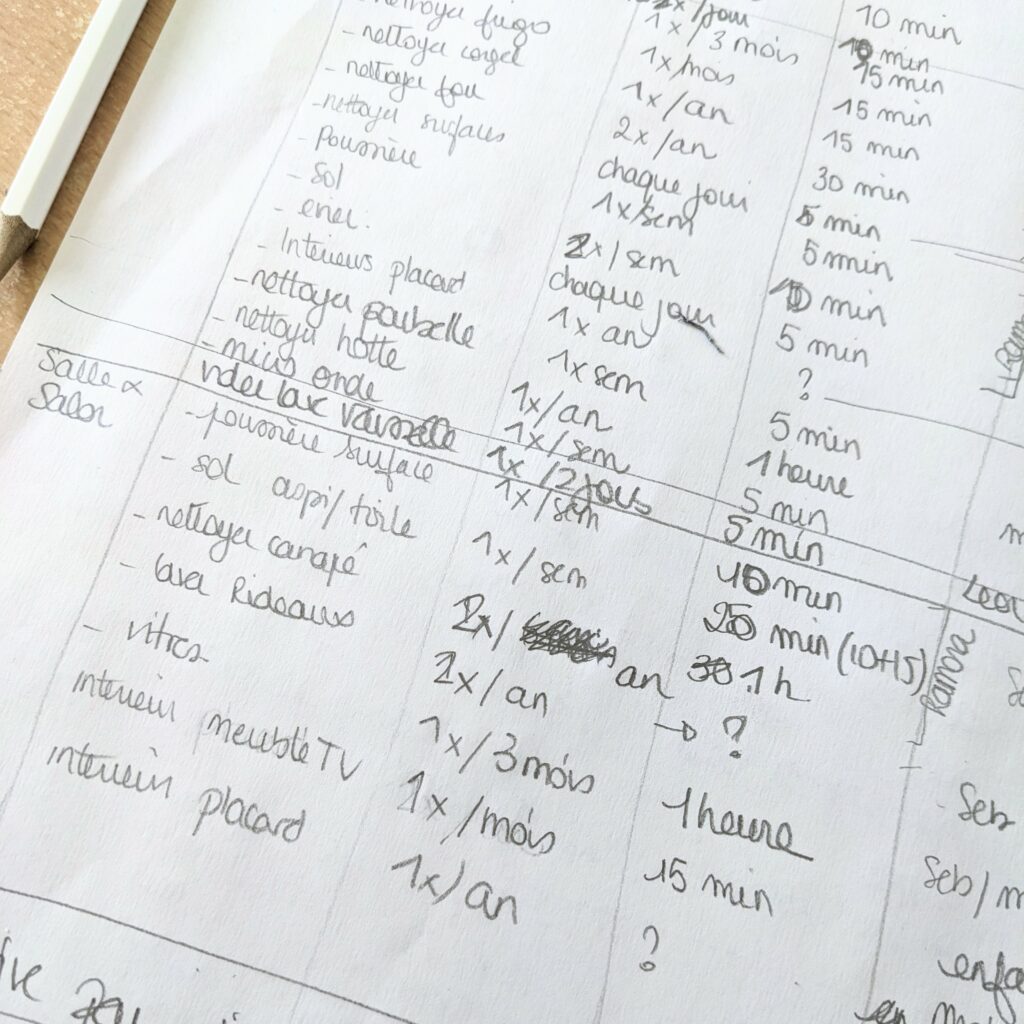 10 min
2x/jour 10 min
1x/3 mois 15 min
nettoyer frigo 1x/mois 15 min
- nettoyer congel 1x/an 15 min
- nettoyer four 2x/an 30 min
- nettoyer surfaces chaque jour 5 min
- Poussière 1x/sem 5 min
- sol 2x/sem 10 min
- evier. chaque jour 5 min
- Interieurs placard 1x an ?
- nettoyer poubelle 1x sem 5 min
- nettoyer hotte 1x/an 1 heure
- micro onde 1x/sem 5 min
vider lave vaisselle 1x/2 jours 5 min
Salle &
Salon
- poussière surface 1x/sem 10 min
- sol aspi/toile 1x/sem 25 min (10+15) Ramona
- nettoyer canapé 2x/ an 1h
- laver Rideaux 2x/an → ?
- vitres 1x/3 mois 1 heure Seb
interieur meuble TV 1x/mois 15 min Seb/m
interieur placard 1x/an ? enfa